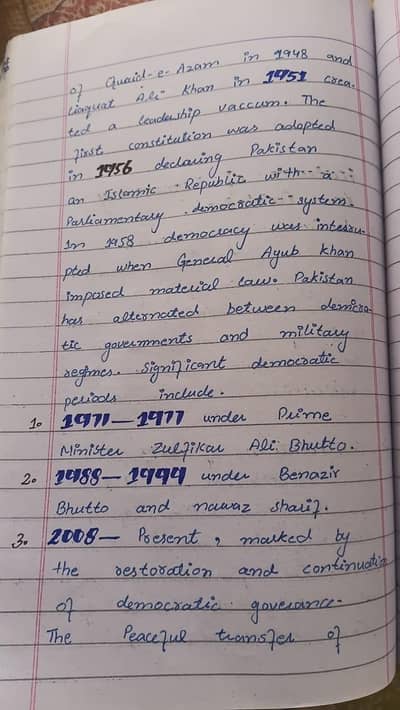 of Quaid-e-Azam in 1948 and
liaquat Ali Khan in 1951 crea-
ted a leadership vaccum. The
first constitution was adopted
in 1956 declaring Pakistan
an Islamic Republic with a
Parliamentary democratic system.
In 1958 democracy was interru-
pted when General Ayub Khan
imposed material law. Pakistan
has alternated between democra-
tic governments and military
regimes. Significant democratic
periods include.
1. 1971-1977 under Prime
Minister Zulfikar Ali Bhutto.
2. 1988-1999 under Benazir
Bhutto and nawaz sharif.
3. 2008- Present, marked by
the restoration and continuation
of democratic goverance.
The Peaceful transfer of